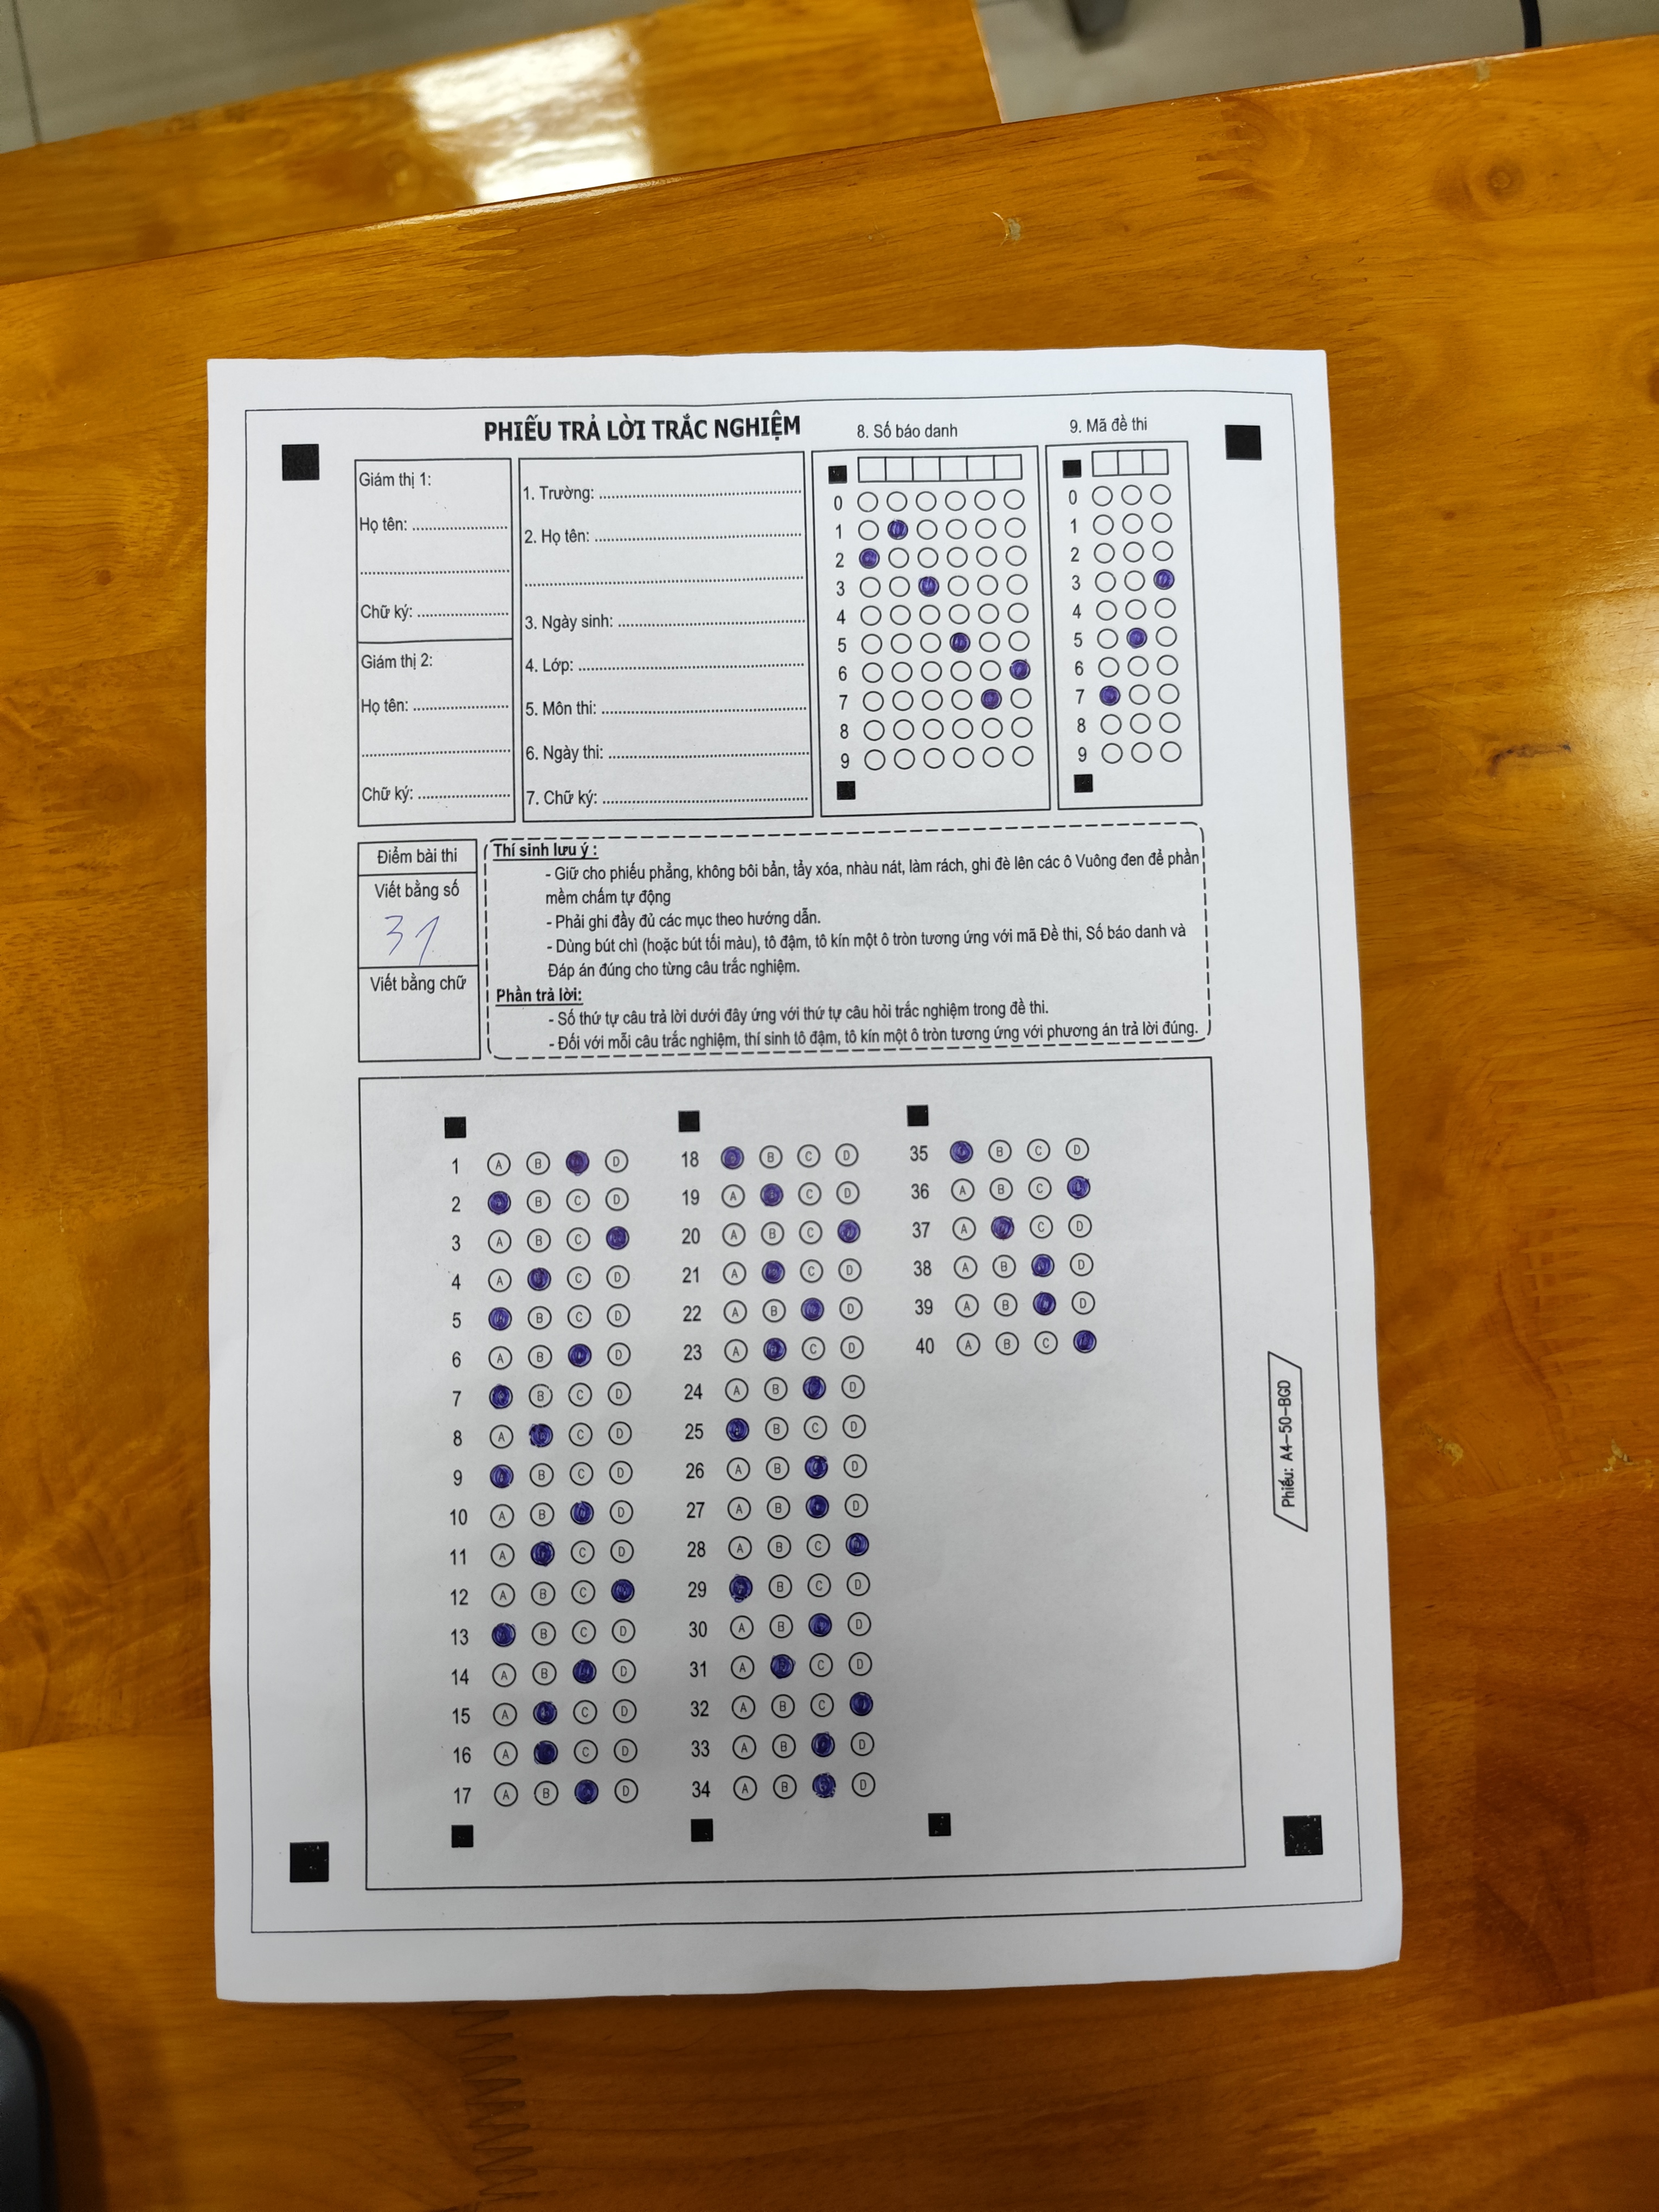 PHIẾU TRẢ LỜI TRẮC NGHIỆM
Giám thị 1:
Họ tên: ........................
......................................
Chữ ký: .......................
Giám thị 2:
Họ tên: ........................
......................................
Chữ ký: .......................
1. Trường: ....................................................
2. Họ tên: .....................................................
.......................................................................
3. Ngày sinh: ................................................
4. Lớp: ..........................................................
5. Môn thi: ....................................................
6. Ngày thi: ...................................................
7. Chữ ký: ....................................................
8. Số báo danh
0
1
2
3
4
5
6
7
8
9
9. Mã đề thi
0
1
2
3
4
5
6
7
8
9
Điểm bài thi
Viết bằng số
31
Viết bằng chữ
Thí sinh lưu ý :
- Giữ cho phiếu phẳng, không bôi bẩn, tẩy xóa, nhàu nát, làm rách, ghi đè lên các ô Vuông đen để phần
mềm chấm tự động
- Phải ghi đầy đủ các mục theo hướng dẫn.
- Dùng bút chì (hoặc bút tối màu), tô đậm, tô kín một ô tròn tương ứng với mã Đề thi, Số báo danh và
Đáp án đúng cho từng câu trắc nghiệm.
Phần trả lời:
- Số thứ tự câu trả lời dưới đây ứng với thứ tự câu hỏi trắc nghiệm trong đề thi.
- Đối với mỗi câu trắc nghiệm, thí sinh tô đậm, tô kín một ô tròn tương ứng với phương án trả lời đúng.
1 A B D
2 B C D
3 A B C
4 A C D
5 B C D
6 A B D
7 B C D
8 A C D
9 B C D
10 A B D
11 A C D
12 A B C
13 B C D
14 A B D
15 A C D
16 A C D
17 A B D
18 B C D
19 A C D
20 A B C
21 A C D
22 A B D
23 A C D
24 A B D
25 B C D
26 A B D
27 A B D
28 A B C
29 B C D
30 A B D
31 A C D
32 A B C
33 A B D
34 A B D
35 B C D
36 A B C
37 A C D
38 A B D
39 A B D
40 A B C
Phiếu: A4-50-BGD